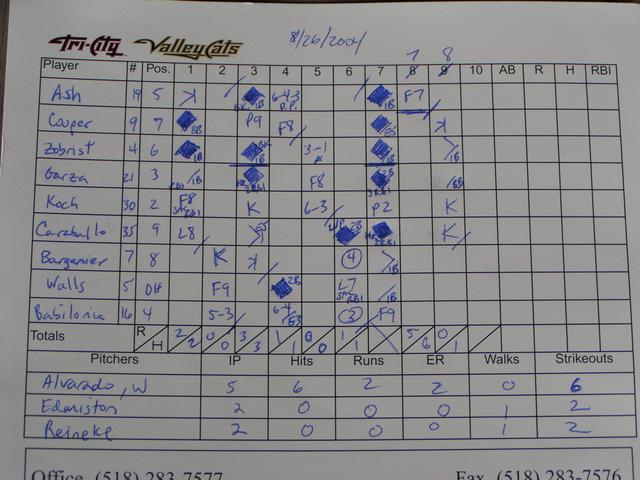 Tri-City ValleyCats 8/26/2004
7 8
Player # Pos. 1 2 3 4 5 6 7 8 9 10 AB R H RBI
Ash 19 5 K 1B 6-4-3 D.P. 1B F7
Couper 9 7 BB F9 F8 K
Zobrist 4 6 1B 1B 3-1 1B 1B
Garza 21 3 1B F8 2B BB
Koch 30 2 F8 K 6-3 P2 K
Caraballo 35 9 L8 2B K
Barganier 7 8 K K 4 1B
Walls 5 DH F9 2B L7 1B
Babilonia 16 4 5-3 6-4 3 F9
Totals R H 2 2 0 0 3 3 1 1 0 0 1 1 5 6 0 1
Pitchers IP Hits Runs ER Walks Strikeouts
Alvarado, W 5 6 2 2 0 6
Edmiston 2 0 0 0 1 2
Reineke 2 0 0 0 1 2
Office (518) 283-7577 Fax (518) 283-7576